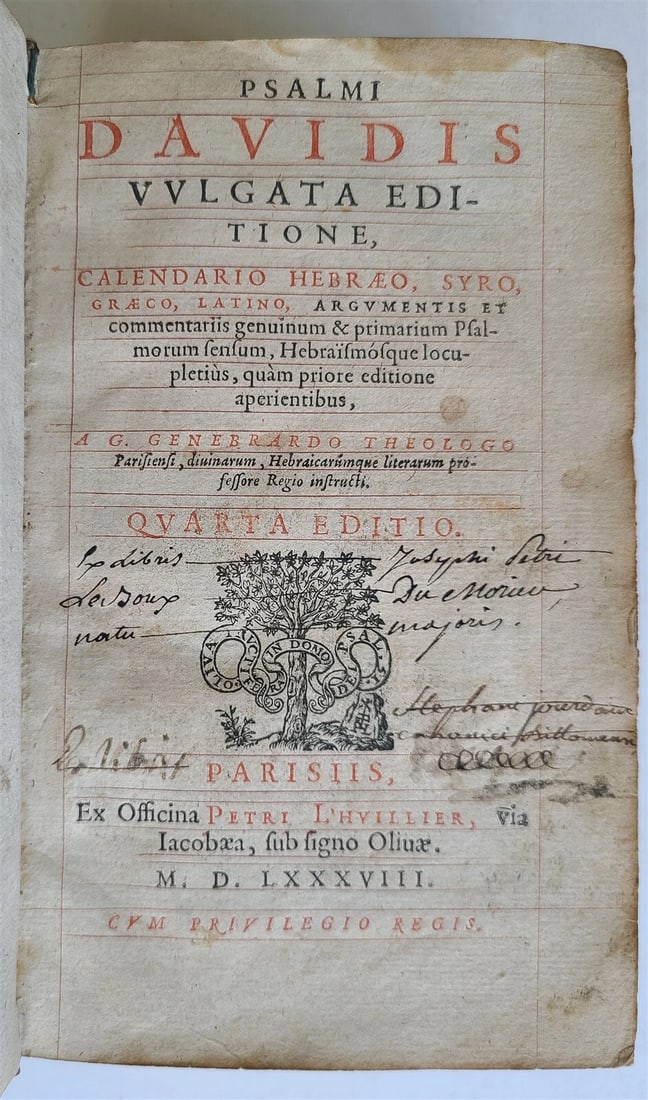 PSALMI
DAVIDIS
VVLGATA EDI-
TIONE,
CALENDARIO HEBRÆO, SYRO,
GRÆCO, LATINO, ARGVMENTIS ET
commentariis genuinum & primarium Pſal-
morum ſenſum, Hebraïſmóſque locu-
pletiùs, quàm priore editione
aperientibus,
A G. GENEBRARDO THEOLOGO
Pariſienſi, diuinarum, Hebraicarúmque literarum pro-
feſſore Regio inſtructi.
QVARTA EDITIO.
Ex Libris Josephi Petri
Le Boux Du
natu majoris.
OLIVA FRUCTIFERA IN DOMO DEI PSAL. 51
Stephani
Ex libris
PARISIIS,
Ex Officina PETRI L'HVILLIER, via
Iacobæa, ſub ſigno Oliuæ.
M. D. LXXXVIII.
CVM PRIVILEGIO REGIS.